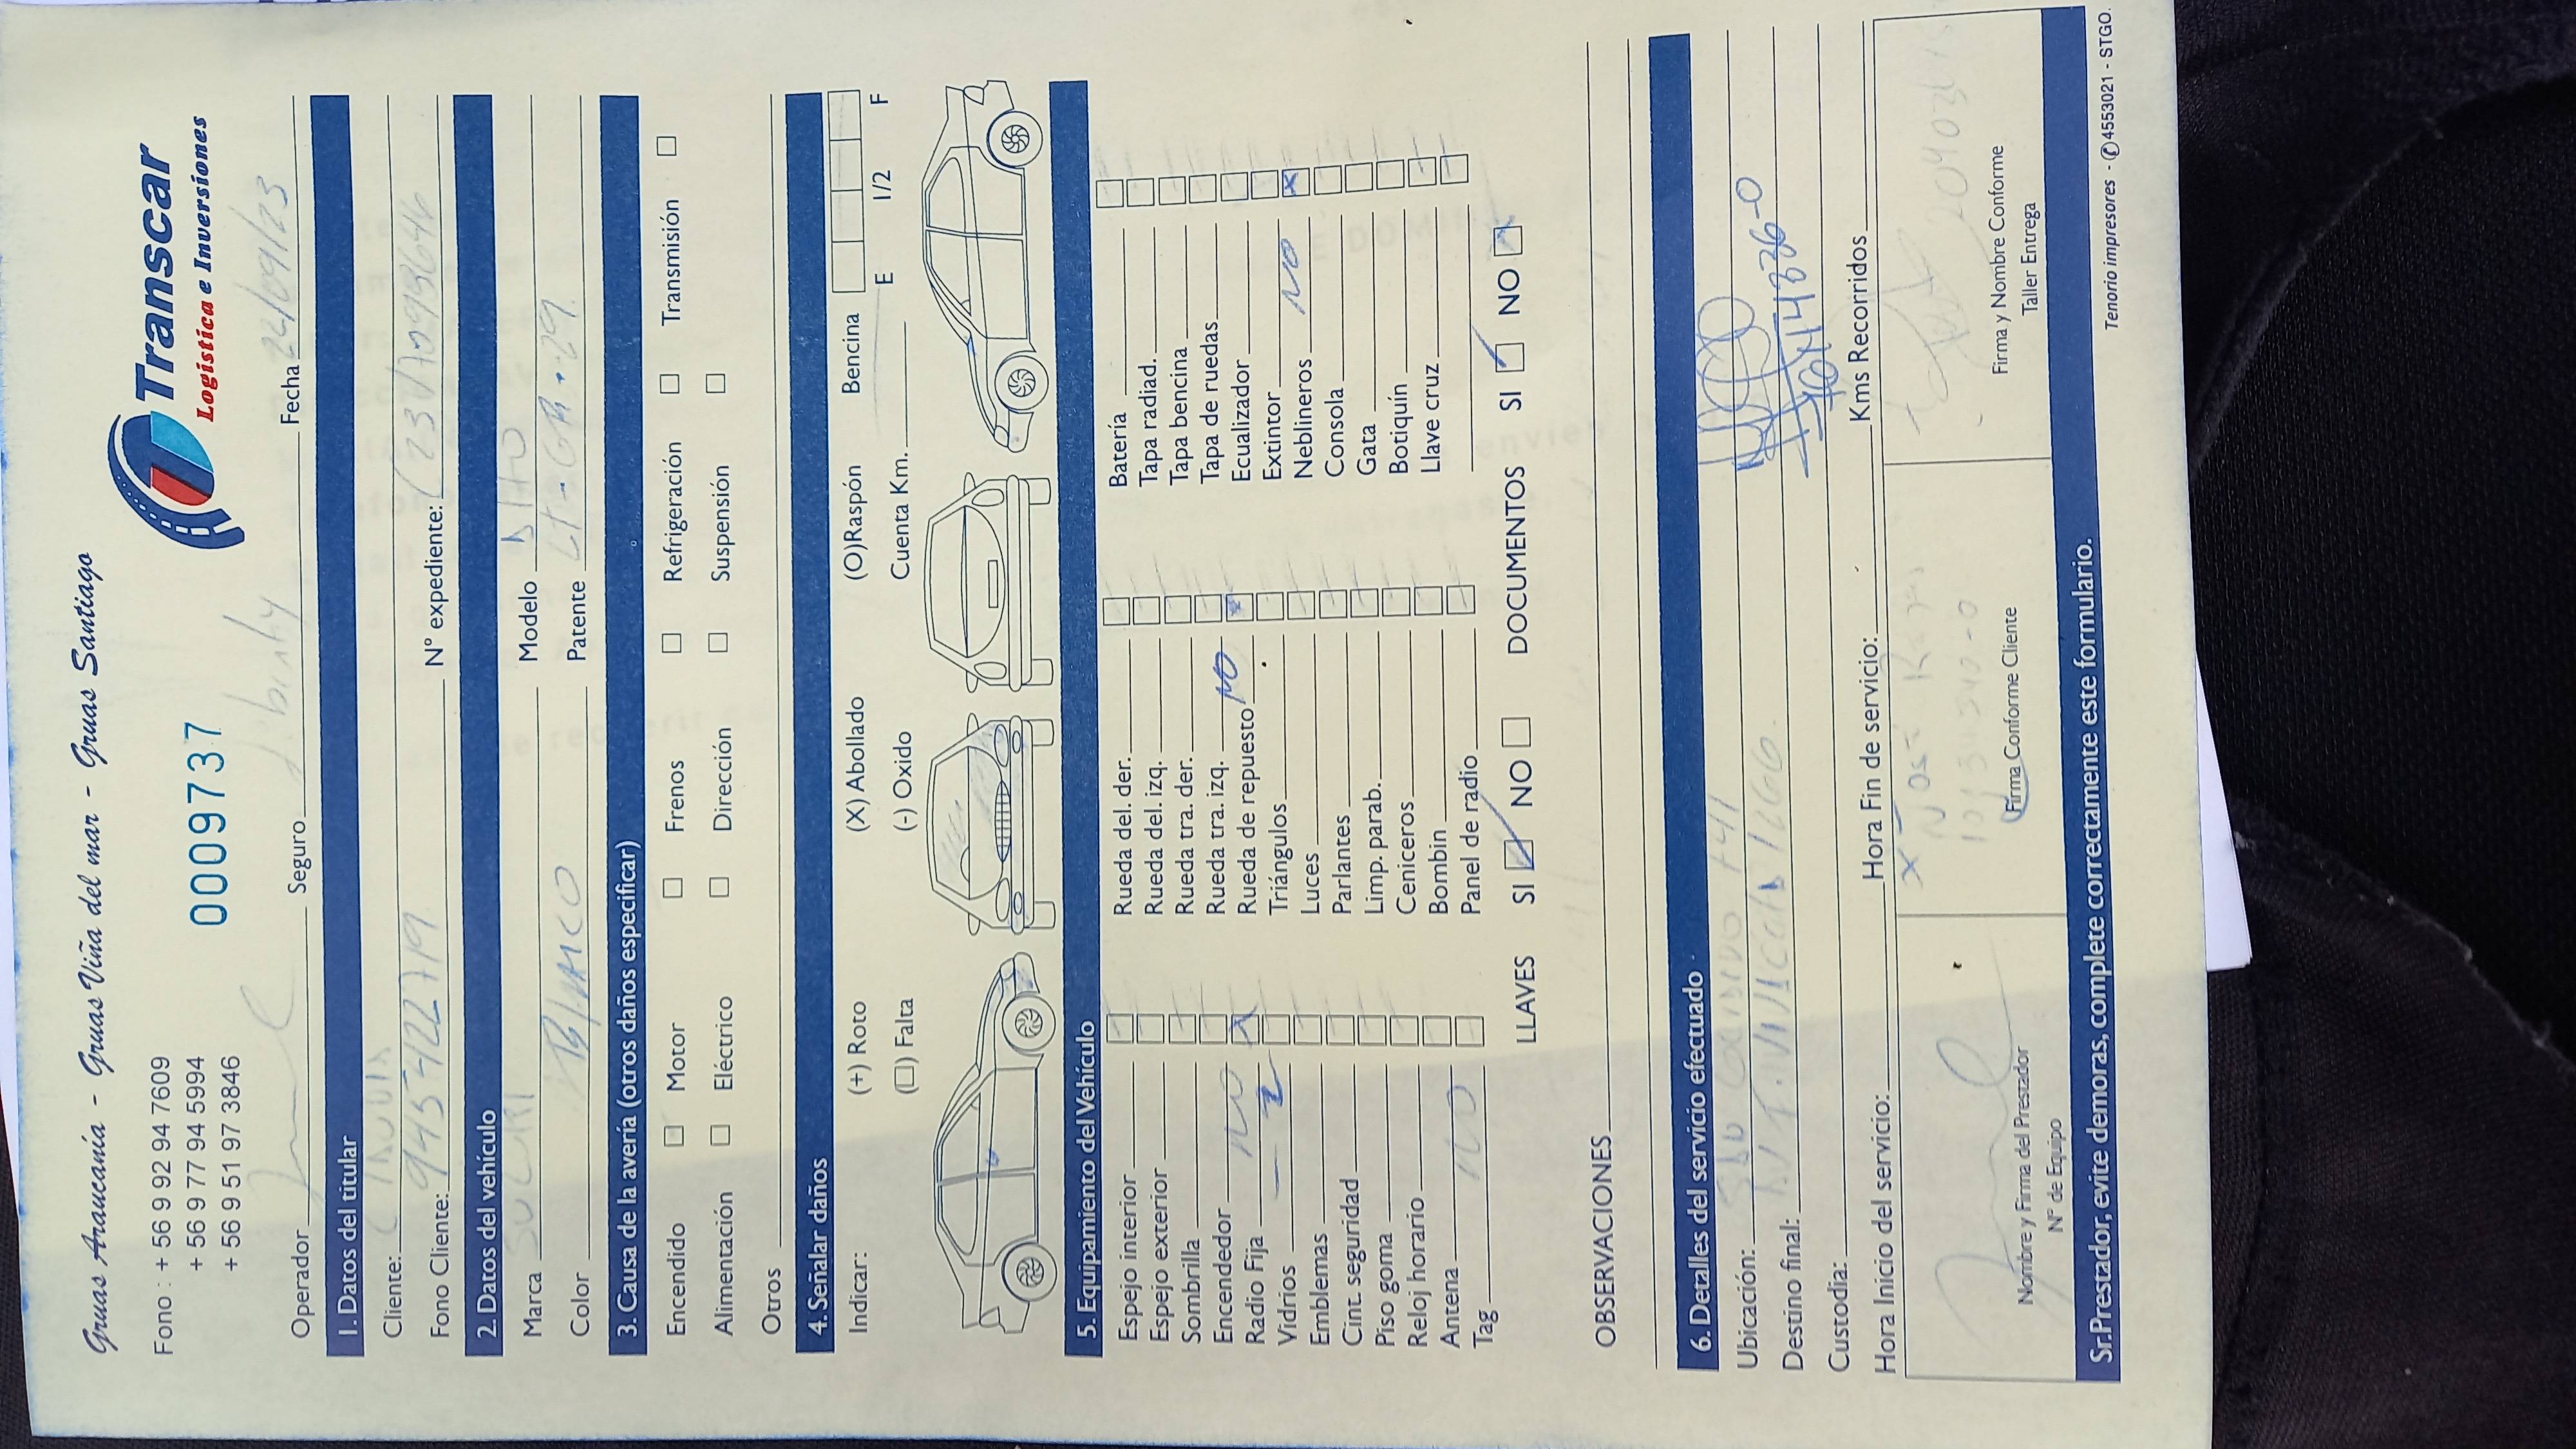 Gruas Araucanía - Gruas Viña del mar - Gruas Santiago
Transcar
Logistica e Inversiones
Fono : + 56 9 92 94 7609
+ 56 9 77 94 5994
+ 56 9 51 97 3846
0009737
Operador Seguro Fecha 22/09/23
1. Datos del titular
Cliente:
Fono Cliente: 945422719 N° expediente:
2. Datos del vehículo
Marca Modelo
Color Blanco Patente
3. Causa de la avería (otros daños especificar)
Encendido Motor Frenos Refrigeración Transmisión
Alimentación Eléctrico Dirección Suspensión
Otros
4. Señalar daños
Indicar: (+) Roto (X) Abollado (O)Raspón Bencina
E 1/2 F
(□) Falta (-) Oxido Cuenta Km.
5. Equipamiento del Vehículo
Espejo interior Rueda del. der. Batería
Espejo exterior Rueda del. izq. Tapa radiad.
Sombrilla Rueda tra. der. Tapa bencina
Encendedor NO Rueda tra. izq. Tapa de ruedas
Radio Fija Rueda de repuesto NO Ecualizador
Vidrios Triángulos Extintor NO
Emblemas Luces Neblineros
Cint. seguridad Parlantes Consola
Piso goma Limp. parab. Gata
Reloj horario Ceniceros Botiquín
Antena Bombin Llave cruz
Tag NO Panel de radio
LLAVES SI NO DOCUMENTOS SI NO
OBSERVACIONES
6. Detalles del servicio efectuado
Ubicación:
Destino final:
Custodia:
Hora Inicio del servicio: Hora Fin de servicio: Kms Recorridos
Nombre y Firma del Prestador
N° de Equipo
Firma Conforme Cliente
Firma y Nombre Conforme
Taller Entrega
Sr.Prestador, evite demoras, complete correctamente este formulario.
Tenorio impresores - ✆4553021 - STGO.